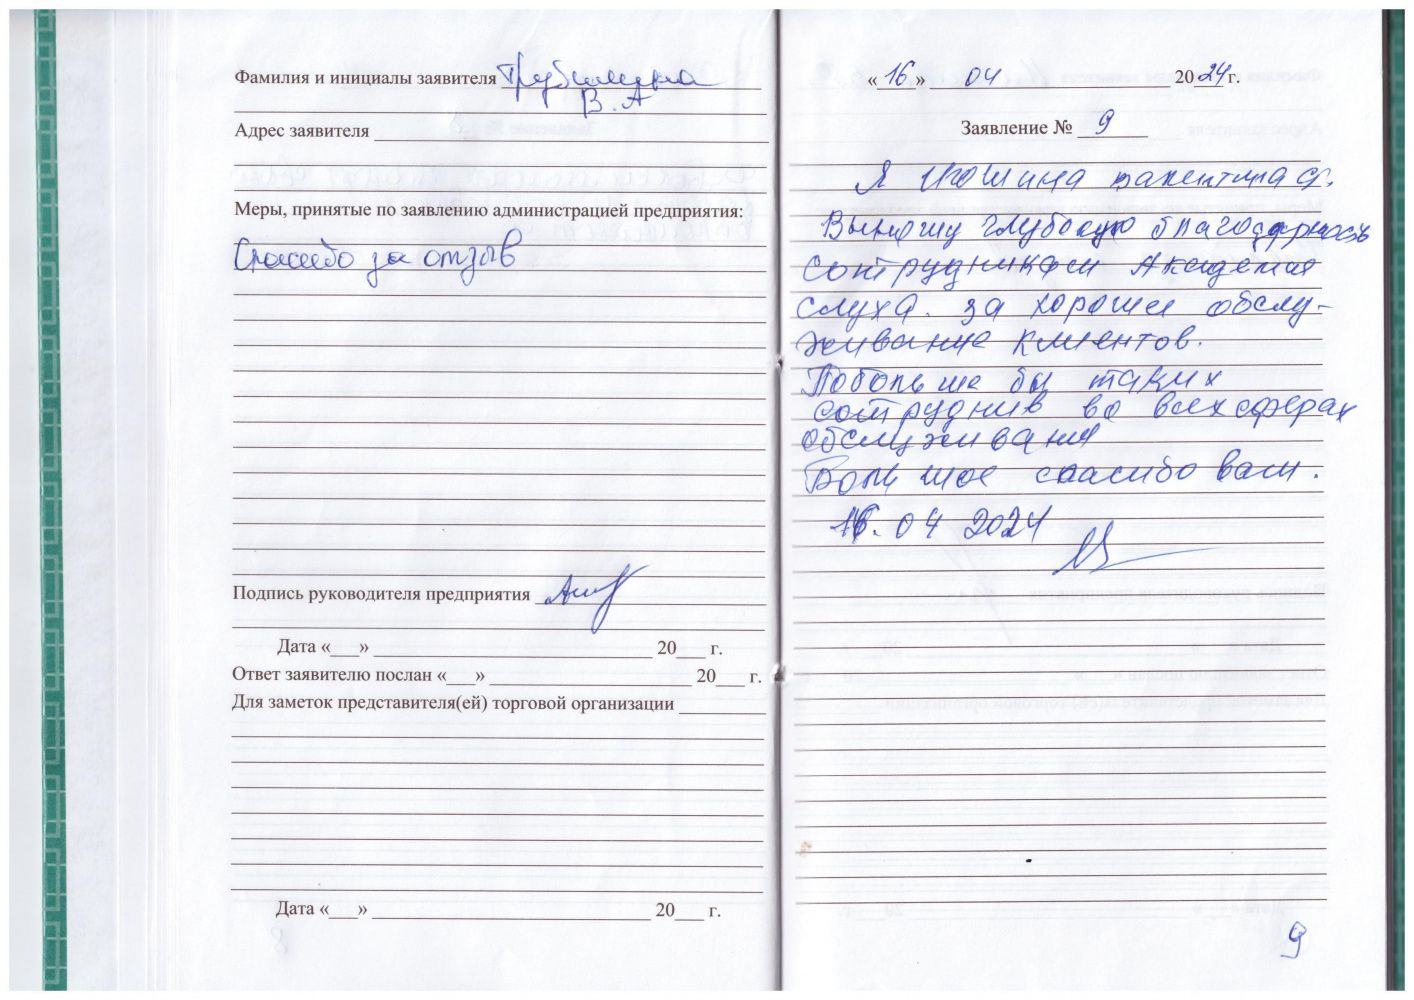 Фамилия и инициалы заявителя
В. А
Адрес заявителя
Меры, принятые по заявлению администрацией предприятия:
Спасибо за отзыв
Подпись руководителя предприятия
Дата «___» ___ 20___ г.
Ответ заявителю послан «___» ___ 20___ г.
Для заметок представителя(ей) торговой организации
Дата «___» ___ 20___ г.
« 16 » 04 2024 г.
Заявление № 9
Я валентина ф.
Выношу глубокую благодарность
сотрудникам Академия
слуха. за хорошее обслу-
живание клиентов.
Побольше бы таких
сотруднив во всех сферах
обслуживания
Большое спасибо вам.
16. 04 2024
9